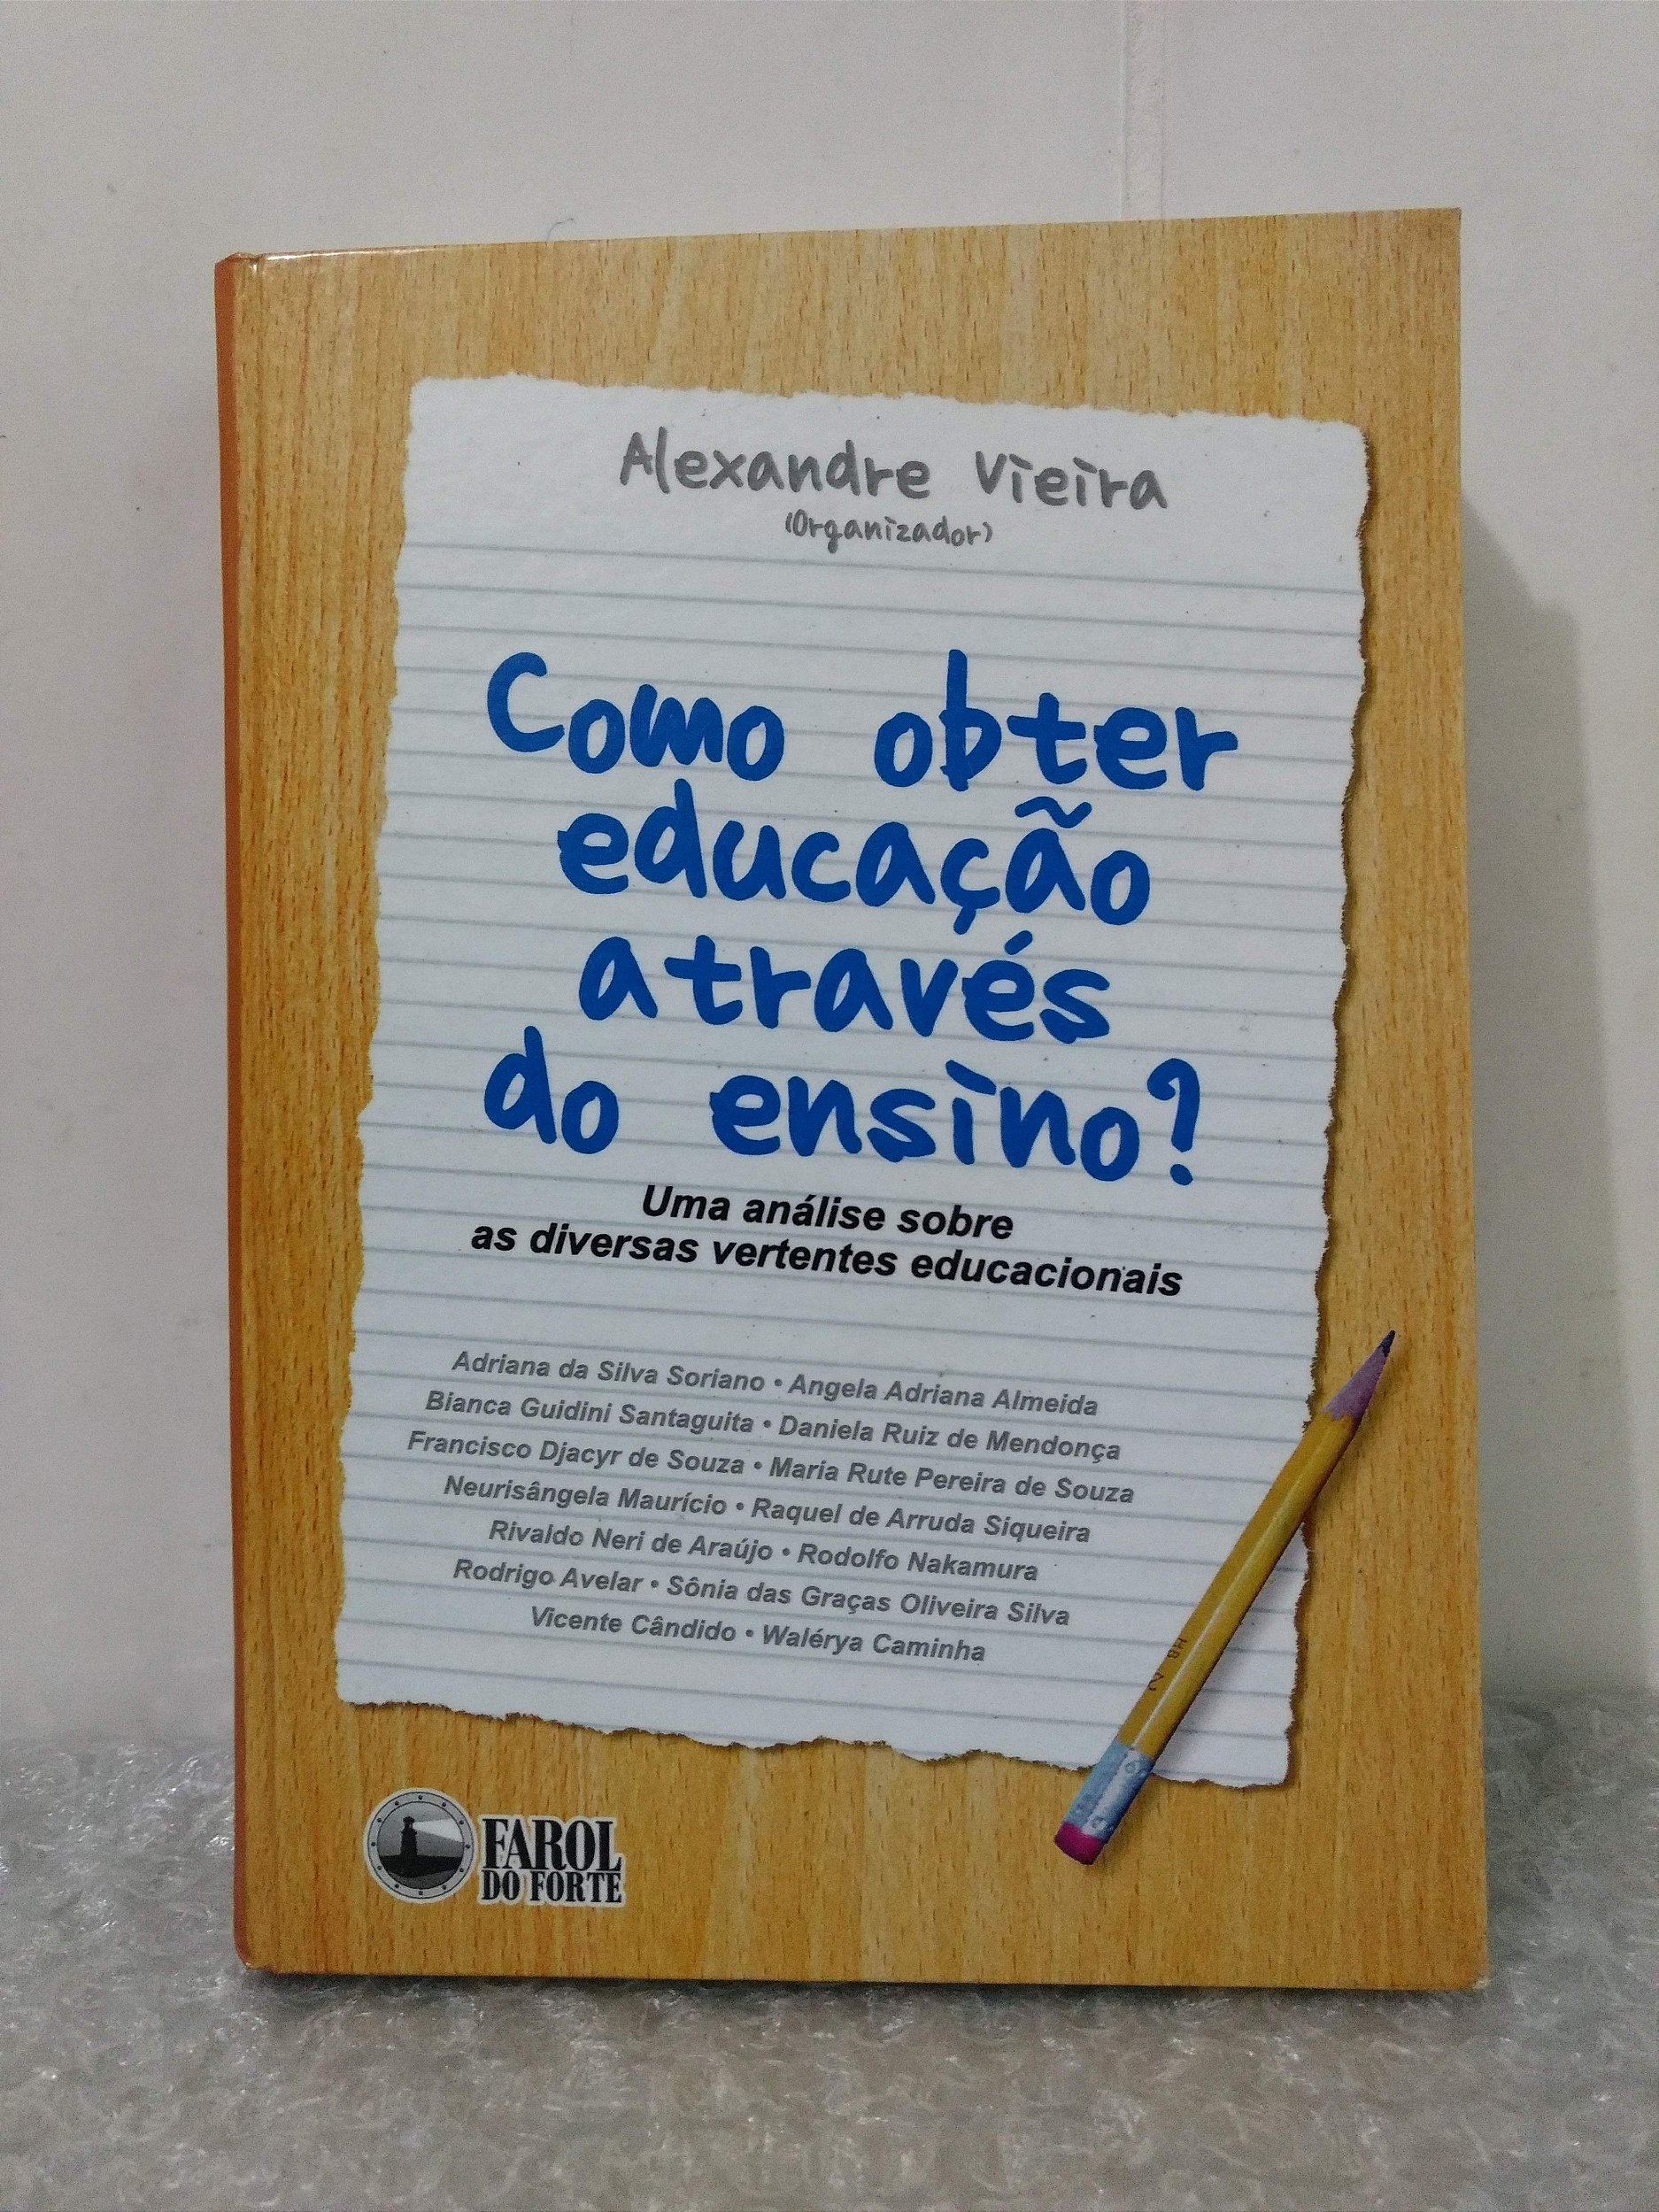 Alexandre Vieira
(Organizador)
Como obter
educação
através
do ensino?
Uma análise sobre
as diversas vertentes educacionais
Adriana da Silva Soriano • Angela Adriana Almeida
Bianca Guidini Santaguita • Daniela Ruiz de Mendonça
Francisco Djacyr de Souza • Maria Rute Pereira de Souza
Neurisângela Maurício • Raquel de Arruda Siqueira
Rivaldo Neri de Araújo • Rodolfo Nakamura
Rodrigo Avelar • Sônia das Graças Oliveira Silva
Vicente Cândido • Walérya Caminha
HB
FAROL
DO FORTE